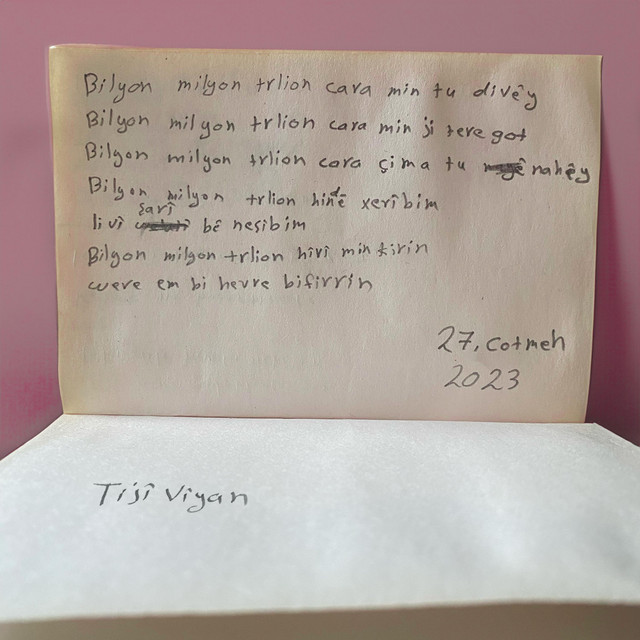 Bilyon milyon trlion cara min tu divêy
Bilyon milyon trlion cara min ji tere got
Bilyon milyon trlion cara çima tu nahêy
Bilyon milyon trlion hindê xerîbim
li vî şarî bê nesîbim
Bilyon milyon trlion hîvî min kirin
were em bi hevre bifirrin
27, cotmeh
2023
Tijî Viyan